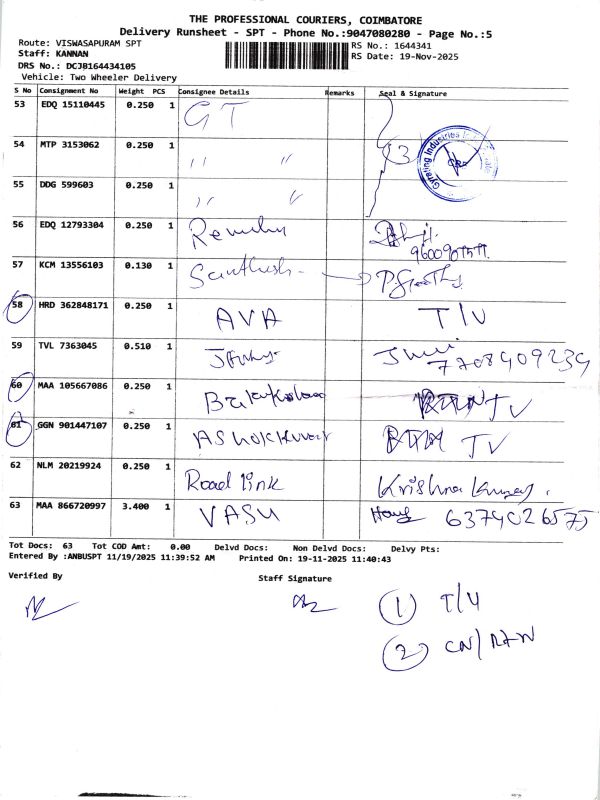 THE PROFESSIONAL COURIERS, COIMBATORE
Delivery Runsheet - SPT - Phone No.:9047080280 - Page No.:5
Route: VISWASAPURAM SPT
Staff: KANNAN
DRS No.: DCJB164434105
Vehicle: Two Wheeler Delivery
RS No.: 1644341
RS Date: 19-Nov-2025
S No Consignment No Weight PCS Consignee Details Remarks Seal & Signature
53 EDQ 15110445 0.250 1 GT
54 MTP 3153062 0.250 1 " " 3
55 DDG 599603 0.250 1 " "
56 EDQ 12793304 0.250 1
57 KCM 13556103 0.130 1 Santhosh
58 HRD 362848171 0.250 1 AVA T/V
59 TVL 7363045 0.510 1 7708909239
60 MAA 105667086 0.250 1 TV
61 GGN 901447107 0.250 1 AShokkumar TV
62 NLM 20219924 0.250 1 Road link Krishna Kumar.
63 MAA 866720997 3.400 1 VASU 6379026575
Tot Docs: 63 Tot COD Amt: 0.00 Delvd Docs: Non Delvd Docs: Delvy Pts:
Entered By :ANBUSPT 11/19/2025 11:39:52 AM Printed On: 19-11-2025 11:40:43
Verified By Staff Signature
1 T/4
2